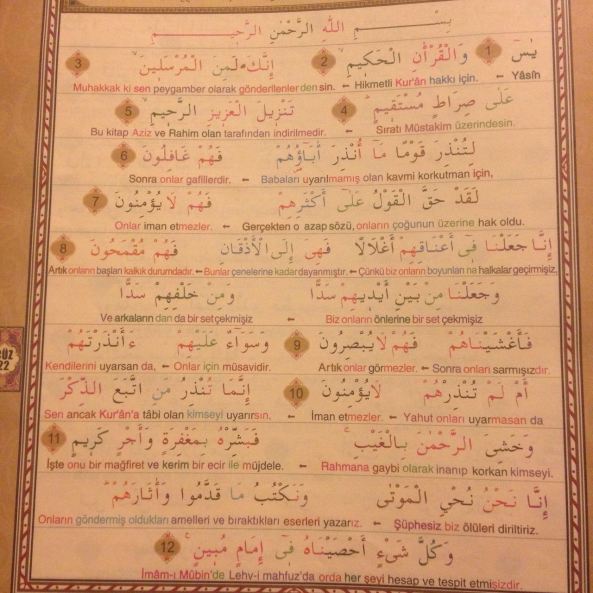 بِسْــــمِ اللّٰهِ الرَّحْمٰنِ الرَّحٖيــــمِ
يٰسٓ 1 وَالْقُرْاٰنِ الْحَكٖيمِۙ 2 اِنَّكَ لَمِنَ الْمُرْسَلٖينَۙ 3
Muhakkak ki sen peygamber olarak gönderilenlerdensin. ← Hikmetli Kur'ân hakkı için. ← Yâsîn
عَلٰى صِرَاطٍ مُسْتَقٖيمٍؕ 4 تَنْزٖيلَ الْعَزٖيزِ الرَّحٖيمِۙ 5
Bu kitap Aziz ve Rahim olan tarafından indirilmedir. ← Sıratı Müstakim üzerindesin.
لِتُنْذِرَ قَوْمًا مَٓا اُنْذِرَ اٰبَٓاؤُ۬هُمْ فَهُمْ غَافِلُونَ 6
Sonra onlar gafillerdir. ← Babaları uyarılmamış olan kavmi korkutman için,
لَقَدْ حَقَّ الْقَوْلُ عَلٰٓى اَكْثَرِهِمْ فَهُمْ لَا يُؤْمِنُونَ 7
Onlar iman etmezler. ← Gerçekten o azap sözü, onların çoğunun üzerine hak oldu.
اِنَّا جَعَلْنَا فٖٓى اَعْنَاقِهِمْ اَغْلَالًا فَهِىَ اِلَى الْاَذْقَانِ فَهُمْ مُقْمَحُونَ 8
Artık onların başları kalkık durumdadır. ← Bunlar çenelerine kadar dayanmıştır. ← Çünkü biz onların boyunlarına halkalar geçirmişiz,
وَجَعَلْنَا مِنْ بَيْنِ اَيْدٖيهِمْ سَدًّا وَمِنْ خَلْفِهِمْ سَدًّا
Ve arkalarından da bir set çekmişiz ← Biz onların önlerine bir set çekmişiz
فَاَغْشَيْنَاهُمْ فَهُمْ لَا يُبْصِرُونَ 9 وَسَوَٓاءٌ عَلَيْهِمْ ءَاَنْذَرْتَهُمْ
Kendilerini uyarsan da, ← Onlar için müsavidir. Artık onlar görmezler. ← Sonra onları sarmışızdır.
اَمْ لَمْ تُنْذِرْهُمْ لَا يُؤْمِنُونَ 10 اِنَّمَا تُنْذِرُ مَنِ اتَّبَعَ الذِّكْرَ
Sen ancak Kur'ân'a tâbi olan kimseyi uyarırsın. ← İman etmezler. ← Yahut onları uyarmasan da
وَخَشِىَ الرَّحْمٰنَ بِالْغَيْبِۚ فَبَشِّرْهُ بِمَغْفِرَةٍ وَاَجْرٍ كَرٖيمٍ 11
İşte onu bir mağfiret ve kerim bir ecir ile müjdele. ← Rahmana gaybi olarak inanıp korkan kimseyi.
اِنَّا نَحْنُ نُحْيِ الْمَوْتٰى وَنَكْتُبُ مَا قَدَّمُوا وَاٰثَارَهُمْؕ
Onların göndermiş oldukları amelleri ve bıraktıkları eserleri yazarız. ← Şüphesiz biz ölüleri diriltiriz.
وَكُلَّ شَىْءٍ اَحْصَيْنَاهُ فٖٓى اِمَامٍ مُبٖينٍࣖ 12
İmâm-ı Mûbin'de Lehv-i mahfuz'da orda her şeyi hesap ve tespit etmişizdir.
CÜZ
22